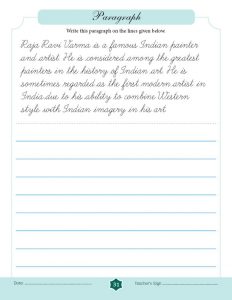 Paragraph
Write this paragraph on the lines given below
Raja Ravi Varma is a famous Indian painter
and artist. He is considered among the greatest
painters in the history of Indian art. He is
sometimes regarded as the first modern artist in
India due to his ability to combine Western
style with Indian imagery in his art
Date Teacher's Sign
31